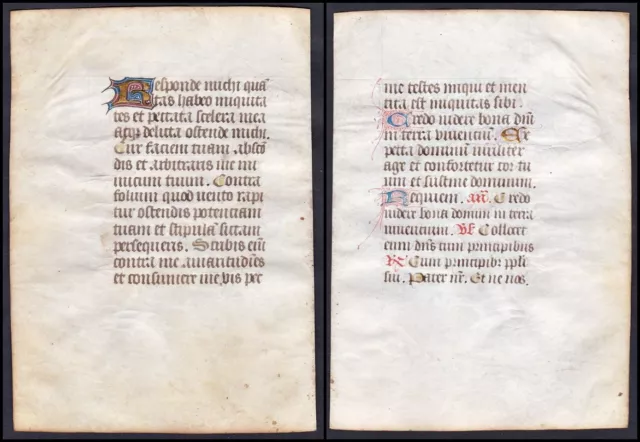 Responde michi quã
tas habeo iniquita
tes et peccata scelera mea
atqꝫ delicta ostende michi.
Cur faciem tuam abscõ
dis et arbitraris me ini
micum tuum. Contra
folium quod vento rapi
tur ostendis potentiam
tuam et stipulã siccam
persequeris. Scribis eñ
contra me amaritudies
et consumere me vis pec
me testes iniqui et men
tita est iniquitas sibi.
Credo videre bona dñi
in terra viventium. Ex
pecta dominum viriliter
age et confortetur cor tu
um et sustine dominum.
Requiem. añ. Credo
videre bona domini in terra
viventium. ℣ Collocet
eum dñs cum principibus
℟ Cum principibꝫ ppli
sui. Pater nr̃. Et ne nos.